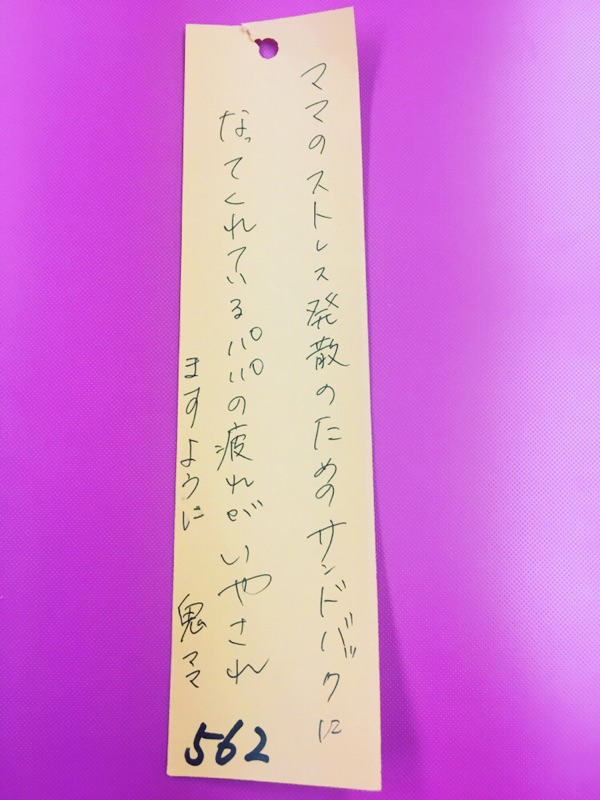 ママのストレス発散のためのサンドバックに
なってくれているパパの疲れがいやされ
ますように
鬼ママ
562